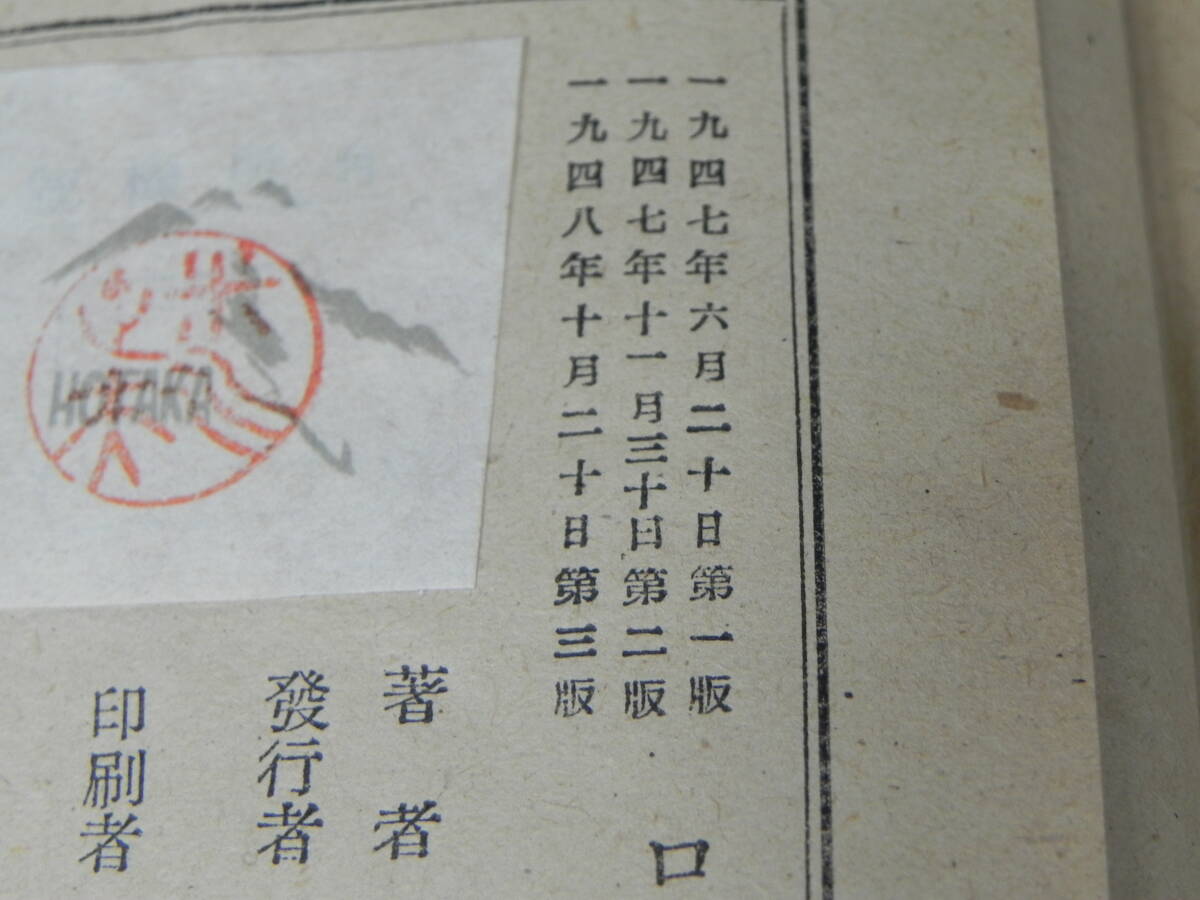 一九四七年六月二十日第一版
一九四七年十一月三十日第二版
一九四八年十月二十日第三版
ロ
著者
發行者
印刷者
HOTAKA